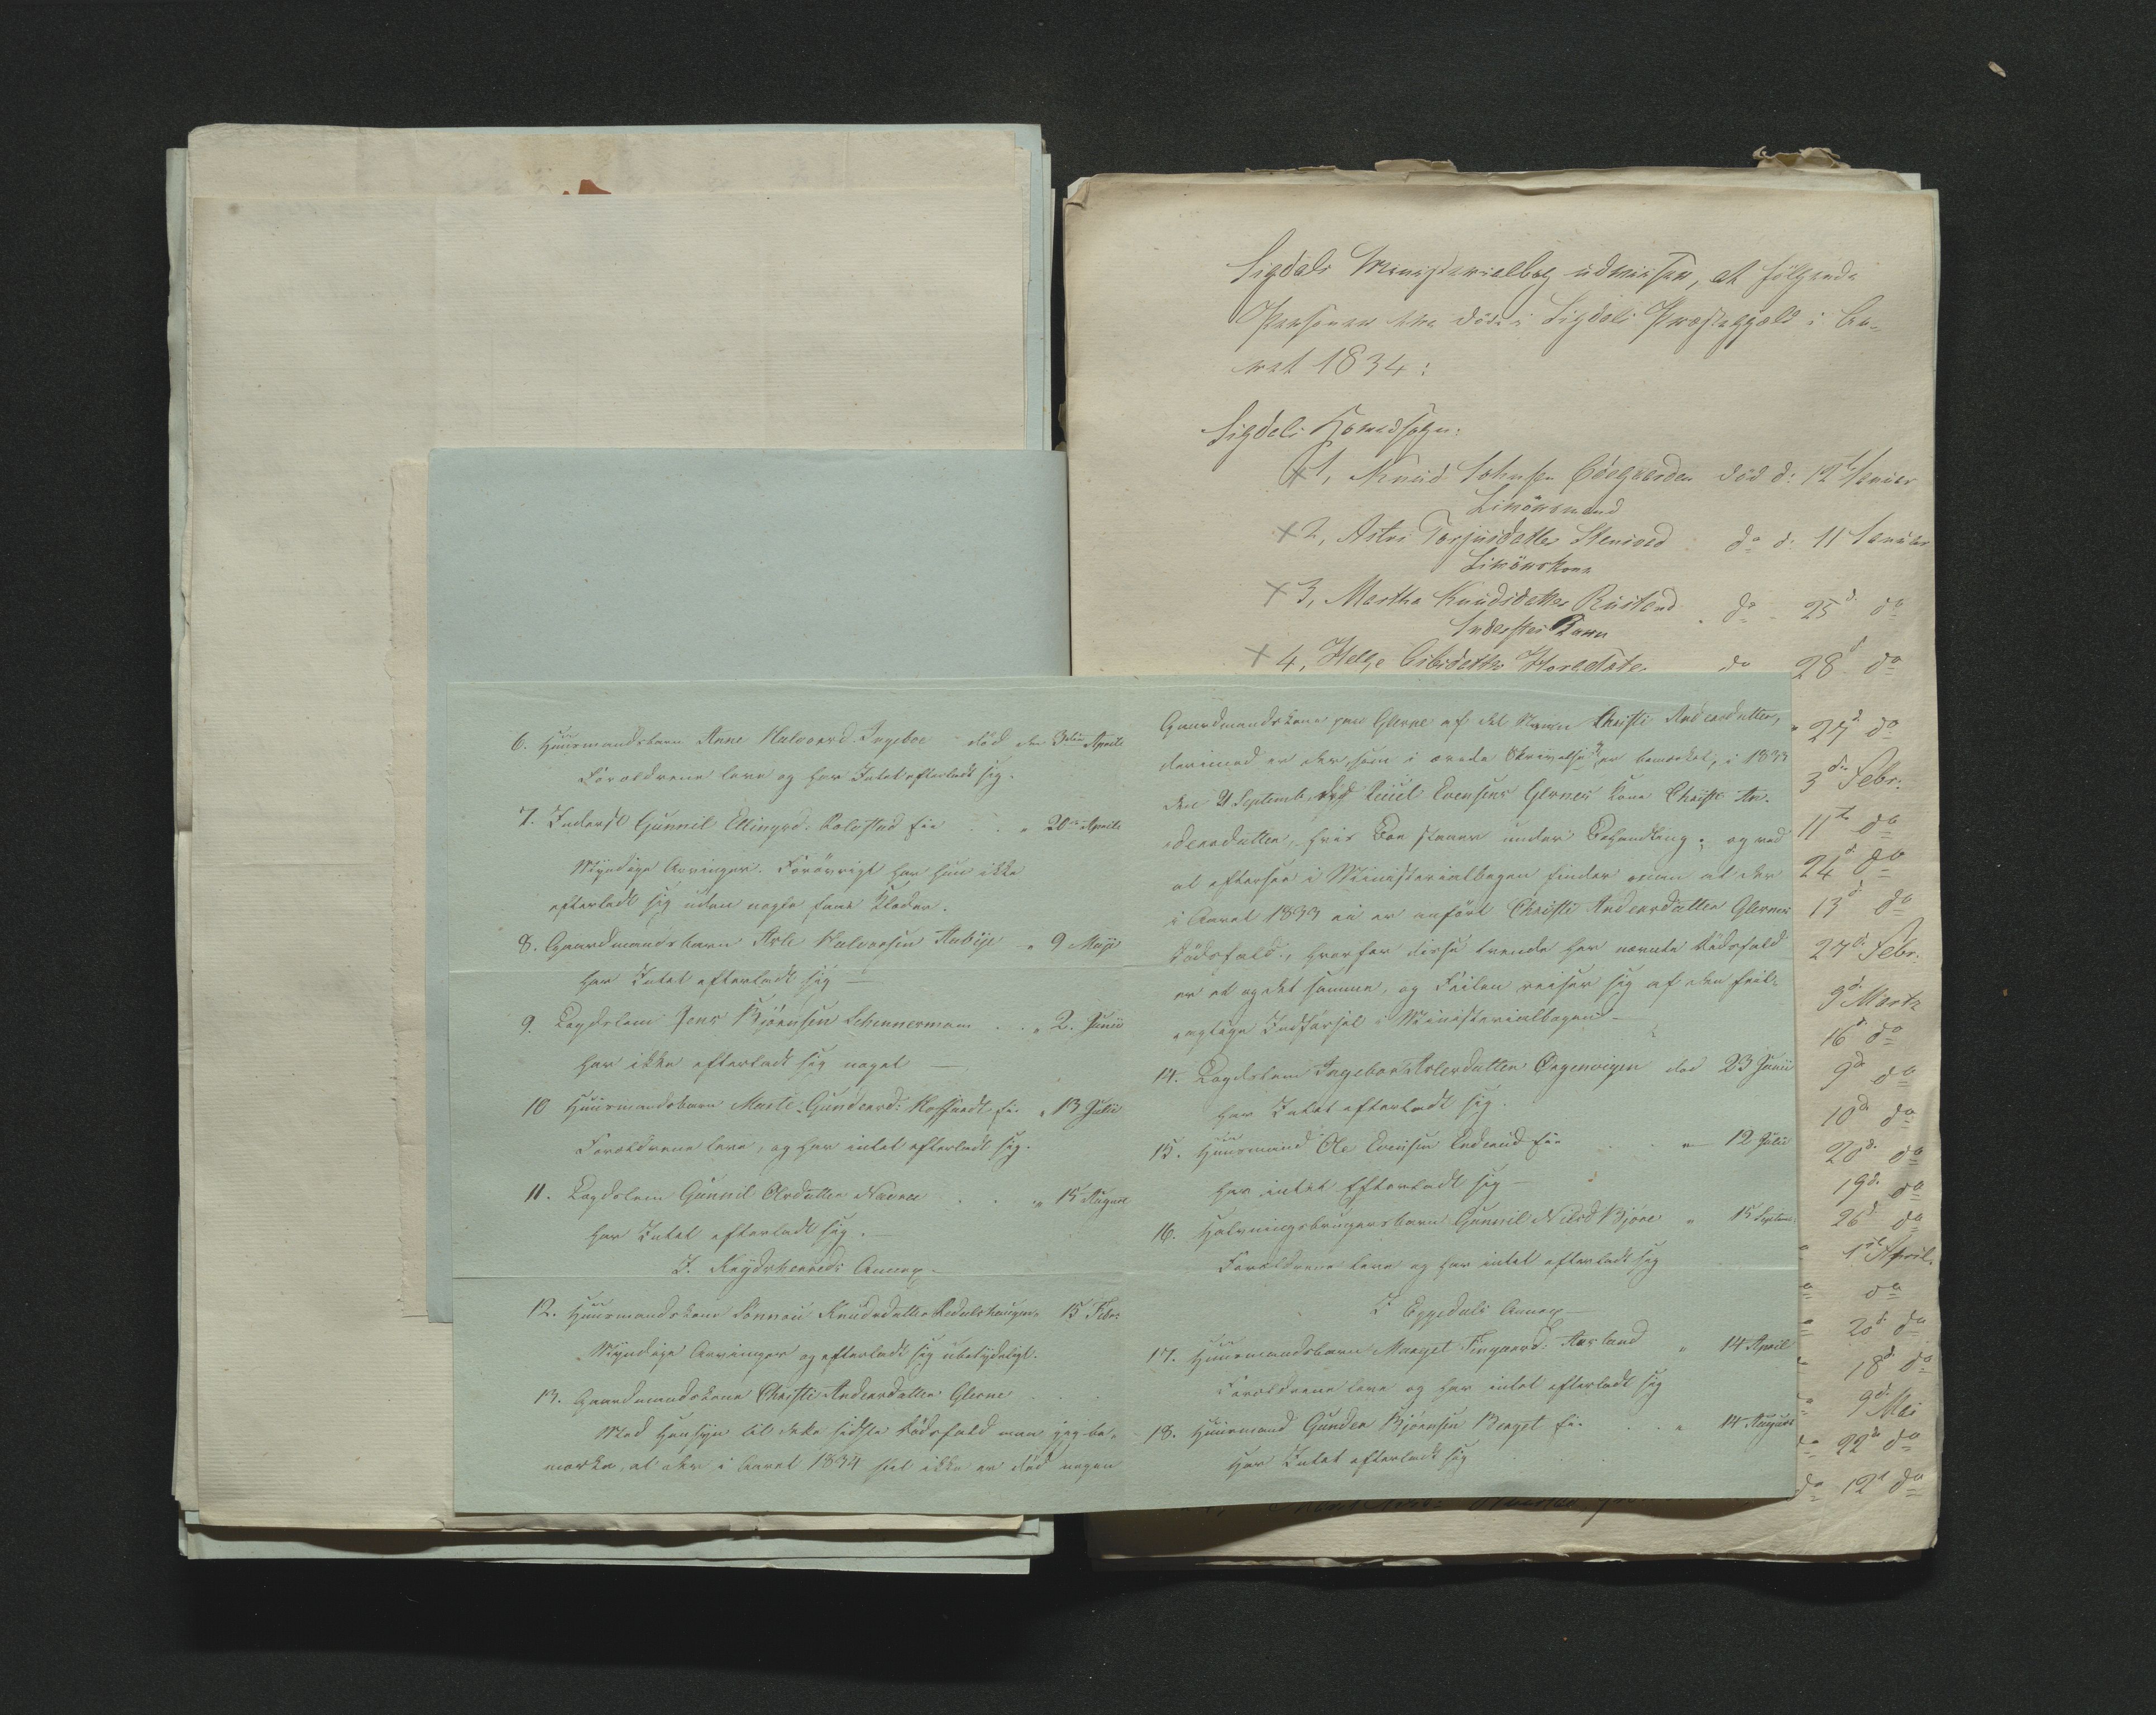 Sigdals Ministerialbog udviiser, at følgende
Personer ere døde i Sigdals Præstegjeld i Aa-
ret 1834:
Sigdals Hovedsogn:
1, Knud Johnsen Ødegaarden død d: 12te Januar
2, Astri Torjusdatter d: 11 Januar
3, Martha Knudsdatter Rustand do 25d do
Inderstes Barn
4, Helge do 28d do
27d do
3die Febr.
11te do
24d do
13d do
27d Febr.
9d Marts
16d do
9d do
10d do
20d. do
19d. do
26d do
1ste April.
do
20d do
18d do
9d Mai
22d do
do 12d do
6. Huusmandsbarn Anne Halvorsd. Ingeboe død den 3die Aprile
Forældrene leve og har Intet efterladt sig.
7. Inderst Gunnil Ellingsd. Kolostad eie " 20de Aprile
Myndige Arvinger. Forøvrigt har hun ikke
efterladt sig uden nogle faae Klæder.
8. Gaardmandsbarn Asle Halvorsen Aabye " 9 Maji
har Intet efterladt sig —
9. Lægdslem Jens Bjørnsen " 2. Junii
har ikke efterladt sig noget —
10 Huusmandsbarn Marte Gundersd: eie " 13 Julii
Forældrene leve, og har intet efterladt sig.
11. Lægdslem Gunnil Olsdatter " 15 August
har Intet efterladt sig. —
I. Krydsherreds Annex.
12. Huusmandskone Sønnou Knudsdatter 15 Febr:
Myndige Arvinger og efterladt sig ubetydeligt.
13. Gaardmandskone Christi Andersdatter Glesne
Med Hensyn til dette sidste Dødsfald maa jeg be-
mærke, at der i Aaret 1834 slet ikke er død nogen
Gaardmandskone paa Glesne af det Navn Christi Andersdatter,
derimod er der, som i ærede Skrivelse er bemærket, i 1833
den 21 Septemb. død Evensens Glesnes Kone Christi An-
dersdatter, hvis Boe staaer under Behandling; og ved
at eftersee i Ministerialbogen finder man at der
i Aaret 1833 ei er anført Christi Andersdatter Glesnes
Dødsfald, hvorfor disse tvende her nævnte Dødsfald
er et og det samme, og Feilen reiser sig af den feil-
agtige Indførsel i Ministerialbogen —
14. Lægdslem Ingebor Aslesdatter død 23 Junii
har Intet efterladt sig.
15. Huusmand Ole Evensen eie " 12 Julii
har intet Efterladt sig —
16. Gunnil Nilsd Bjøre " 15 Septemb:
Forældrene leve og har intet efterladt sig
I Eggedals Annex
17. Huusmandsbarn Margit Aasland " 14 April
Forældrene leve og har intet efterladt sig
18. Huusmand Gunder Bjørnsen Berget eie " 14 August
Har Intet efterladt sig